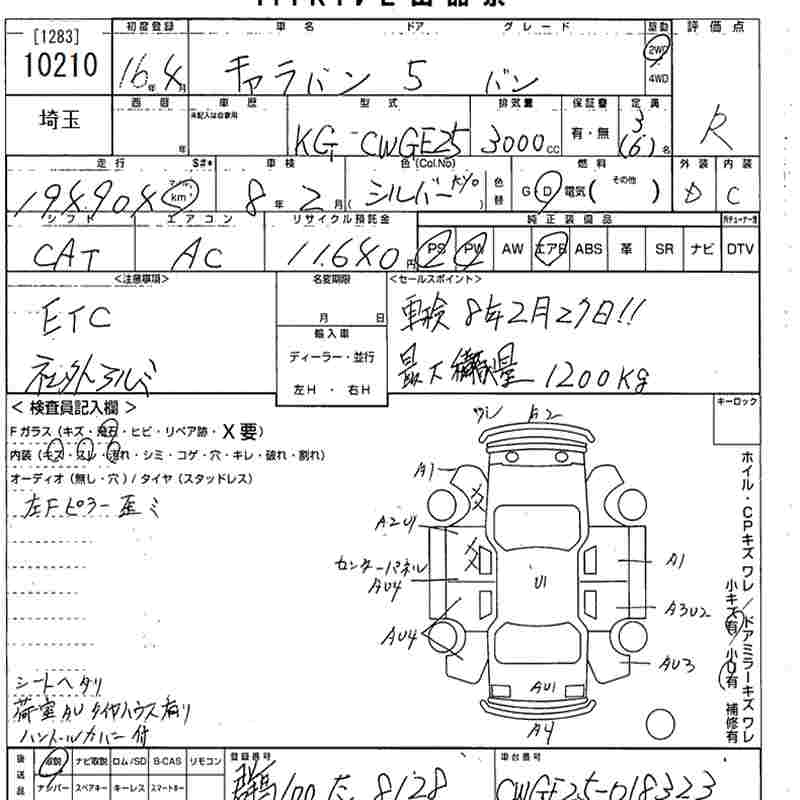 [1283] 初度登録 車名 ドア グレード 駆動 評価点
10210 16年4月 キャラバン 5 バン 2WD 4WD R
埼玉 西暦 年 車歴 未記入は自家用 型式 KG-CWGE25 排気量 3000CC 保証書 有・無 定員 3(6)名
走行 S#* 車検 色(Col.No) 燃料 外装 内装
194904 マイル km 8年2月 シルバー( ) 色替 G D 電気( その他 ) D C
シフト エアコン リサイクル預託金 純正装備品
CAT AC 11,640円 PS PW AW エアB ABS 革 SR ナビ DTV
<注意事項> 名変期限 <セールスポイント>
ETC 月 日 車検 8年2月27日!!
輸入車
社外アルミ ディーラー・並行 最大積載量 1200KG
左H・右H
<検査員記入欄> キーロック
Fガラス(キズ・飛石・ヒビ・リペア跡・X要)
内装(キズ・スレ・汚れ・シミ・コゲ・穴・キレ・破れ・割れ)
オーディオ(無し・穴)/タイヤ(スタッドレス)
左Fピラー歪ミ
ワレ A2
A1
X
A2U1
X
センターパネル
AU4
U1
A1
A3U2
AU4
AU3
AU1
A4
ホイル・CPキズ ワレ/ドアミラーキズ ワレ
小キズ有/小U有 補修有
シートヘタリ
荷室AU タイヤハウス有り
ハンドルカバー付
後送品 取説 ナビ取説 ロム/SD B-CAS リモコン 登録番号 車台番号
ナンバー スペアキー キーレス スマートキー 群馬 100 た 8128 CWGE25-018323